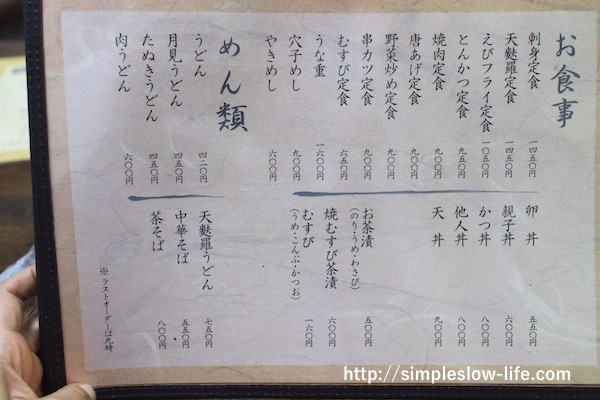 お食事
刺身定食 一四五〇円
天麩羅定食 一四五〇円
えびフライ定食 一〇五〇円
とんかつ定食 九五〇円
焼肉定食 九〇〇円
唐あげ定食 九〇〇円
野菜炒め定食 九〇〇円
串カツ定食 九〇〇円
むすび定食 六五〇円
うな重 一六〇〇円
穴子めし 九〇〇円
やきめし 六〇〇円
卵丼 五五〇円
親子丼 六〇〇円
かつ丼 八〇〇円
他人丼 八〇〇円
天丼 九〇〇円
お茶漬 五〇〇円
(のり・うめ・わさび)
焼むすび茶漬 六〇〇円
むすび 一六〇円
(うめ・こんぶ・かつお)
めん類
うどん 四二〇円
月見うどん 四五〇円
たぬきうどん 四五〇円
肉うどん 六〇〇円
天麩羅うどん 七五〇円
中華そば 五五〇円
茶そば 八〇〇円
※ラストオーダーは九時
http://simpleslow-life.com